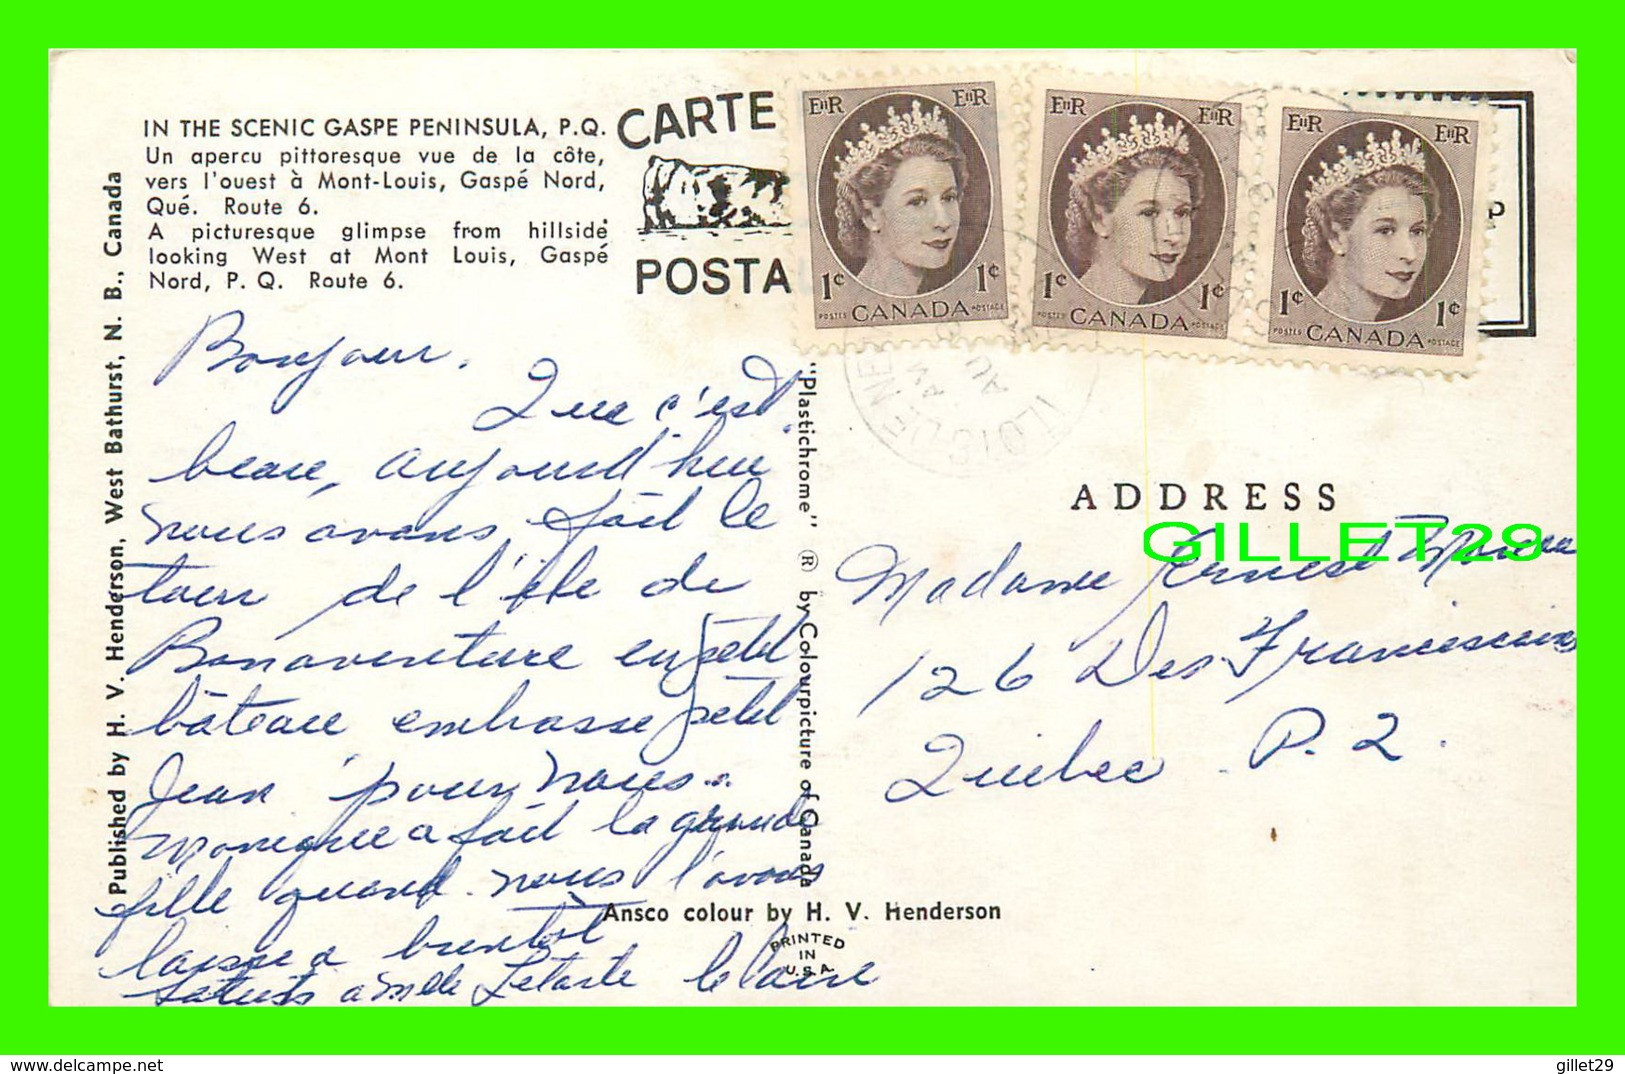 IN THE SCENIC GASPE PENINSULA, P.Q.
Un apercu pittoresque vue de la côte,
vers l'ouest à Mont-Louis, Gaspé Nord,
Qué. Route 6.
A picturesque glimpse from hillside
looking West at Mont Louis, Gaspé
Nord, P. Q. Route 6.
CARTE
POSTA
EIIR EIIR
1¢ 1¢
POSTES CANADA POSTAGE
EIIR EIIR
1¢ 1¢
POSTES CANADA POSTAGE
EIIR EIIR
1¢ 1¢
POSTES CANADA POSTAGE
P
Published by H. V. Henderson, West Bathurst, N. B., Canada
Bonjour.
Que c'est
beau, aujourd'hui
nous avons fait le
tour de l'île de
Bonaventure en petit
bâteau embrasse petit
Jean pour nous.
Monique a fait la grande
fille quand nous l'avons
laissé a bientôt
Saluts a Mlle Letarte
"Plastichrome" ® by Colourpicture of Canada
ADDRESS
GILLET29
Madame Ernest
126 Des Franciscains
Québec P. 2.
Ansco colour by H. V. Henderson
PRINTED
IN
U.S.A.
https://www.delcampe.net
gillet29